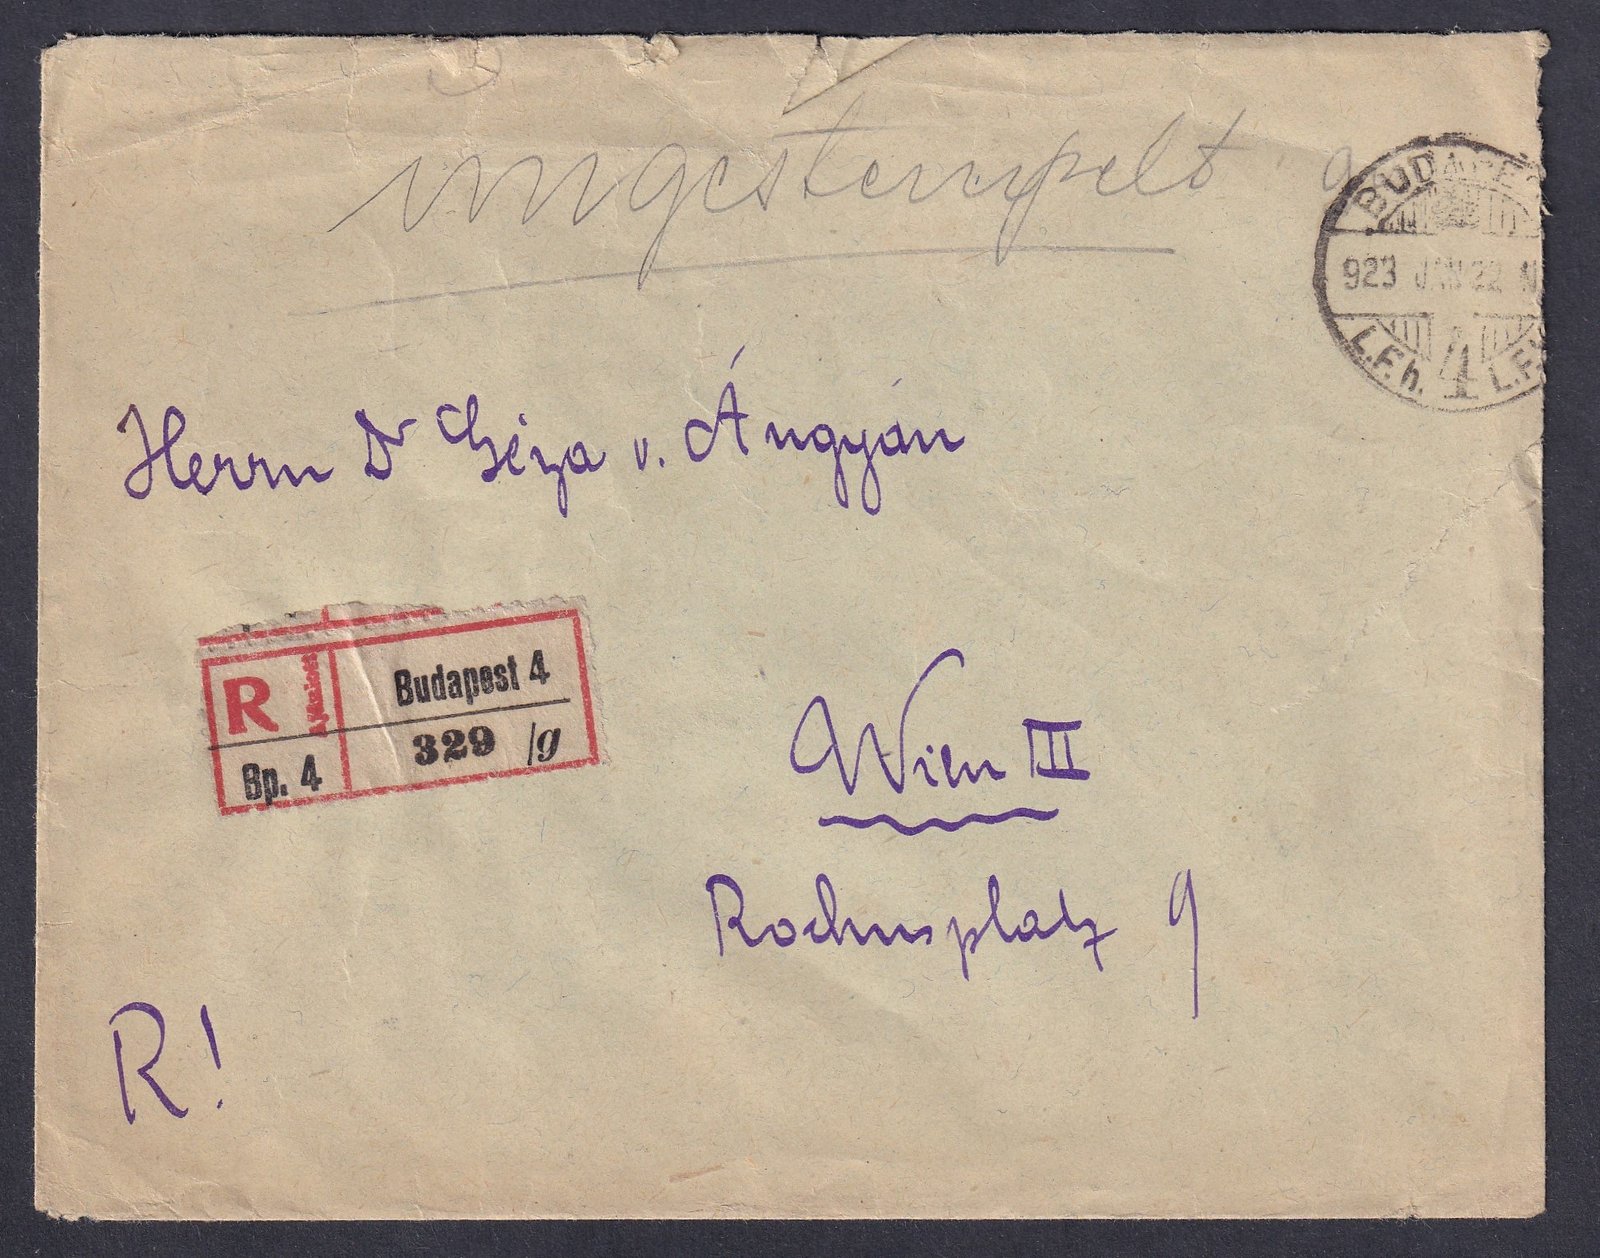 ungestempelt
BUDAPES
923 JAN 22 N
L.F.h. 4 L.F.
Herrn Dr Géza v. Ángyán
R Ajánlott Budapest 4
Bp. 4 329 /g
Wien III
Rochusplatz 9
R!